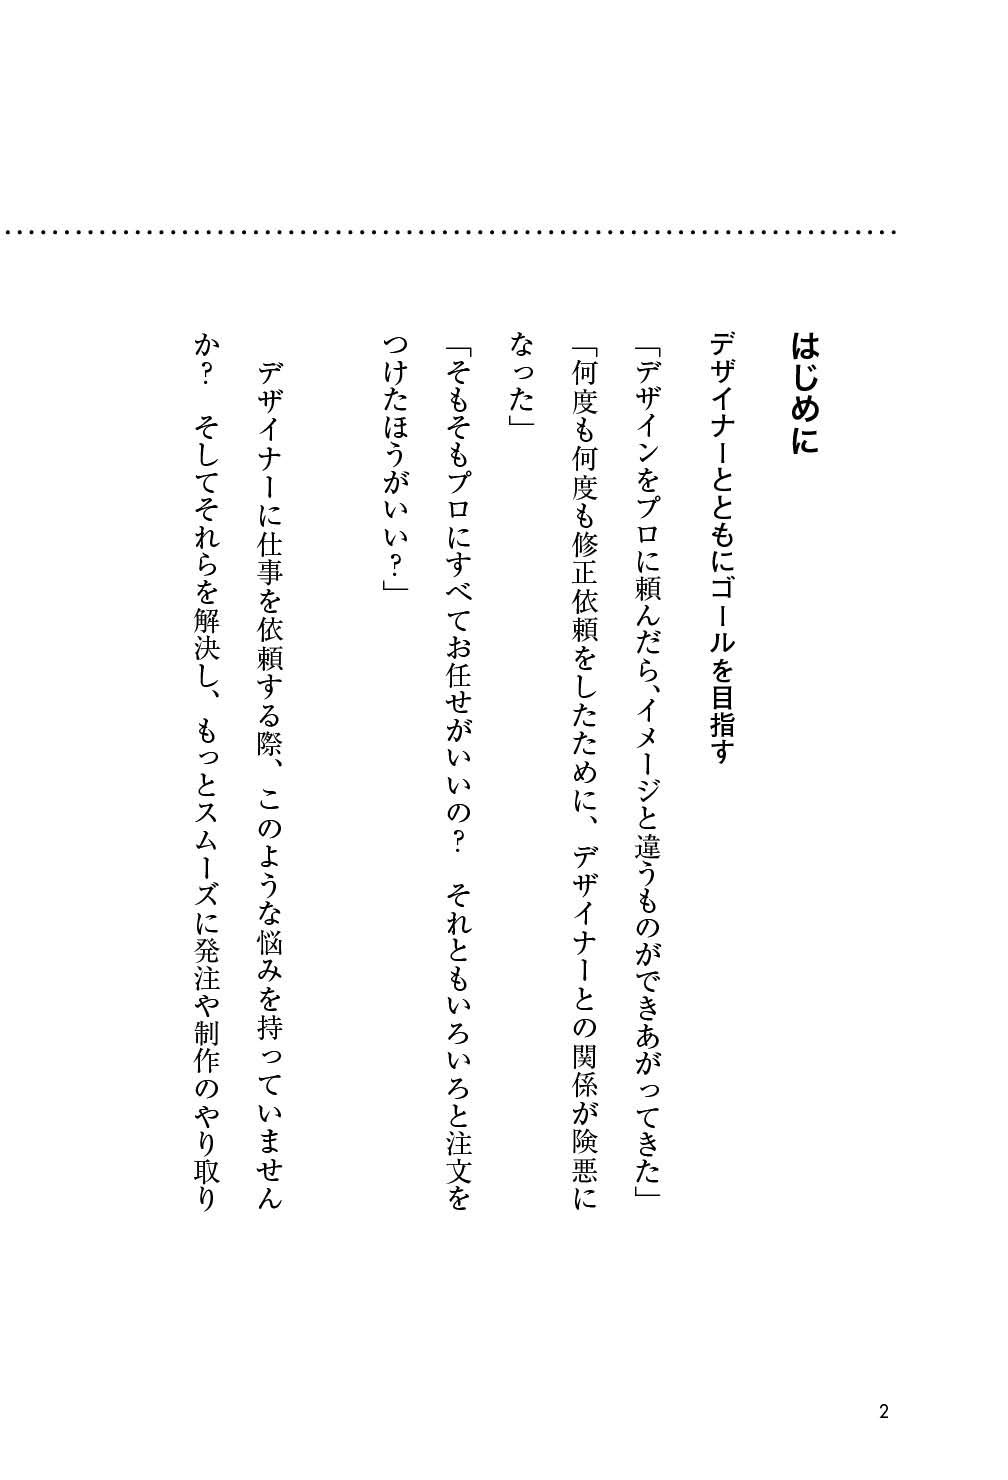 はじめに
デザイナーとともにゴールを目指す
「デザインをプロに頼んだら、イメージと違うものができあがってきた」
「何度も何度も修正依頼をしたために、デザイナーとの関係が険悪に
なった」
「そもそもプロにすべてお任せがいいの？　それともいろいろと注文を
つけたほうがいい？」
　デザイナーに仕事を依頼する際、このような悩みを持っていません
か？　そしてそれらを解決し、もっとスムーズに発注や制作のやり取り
2